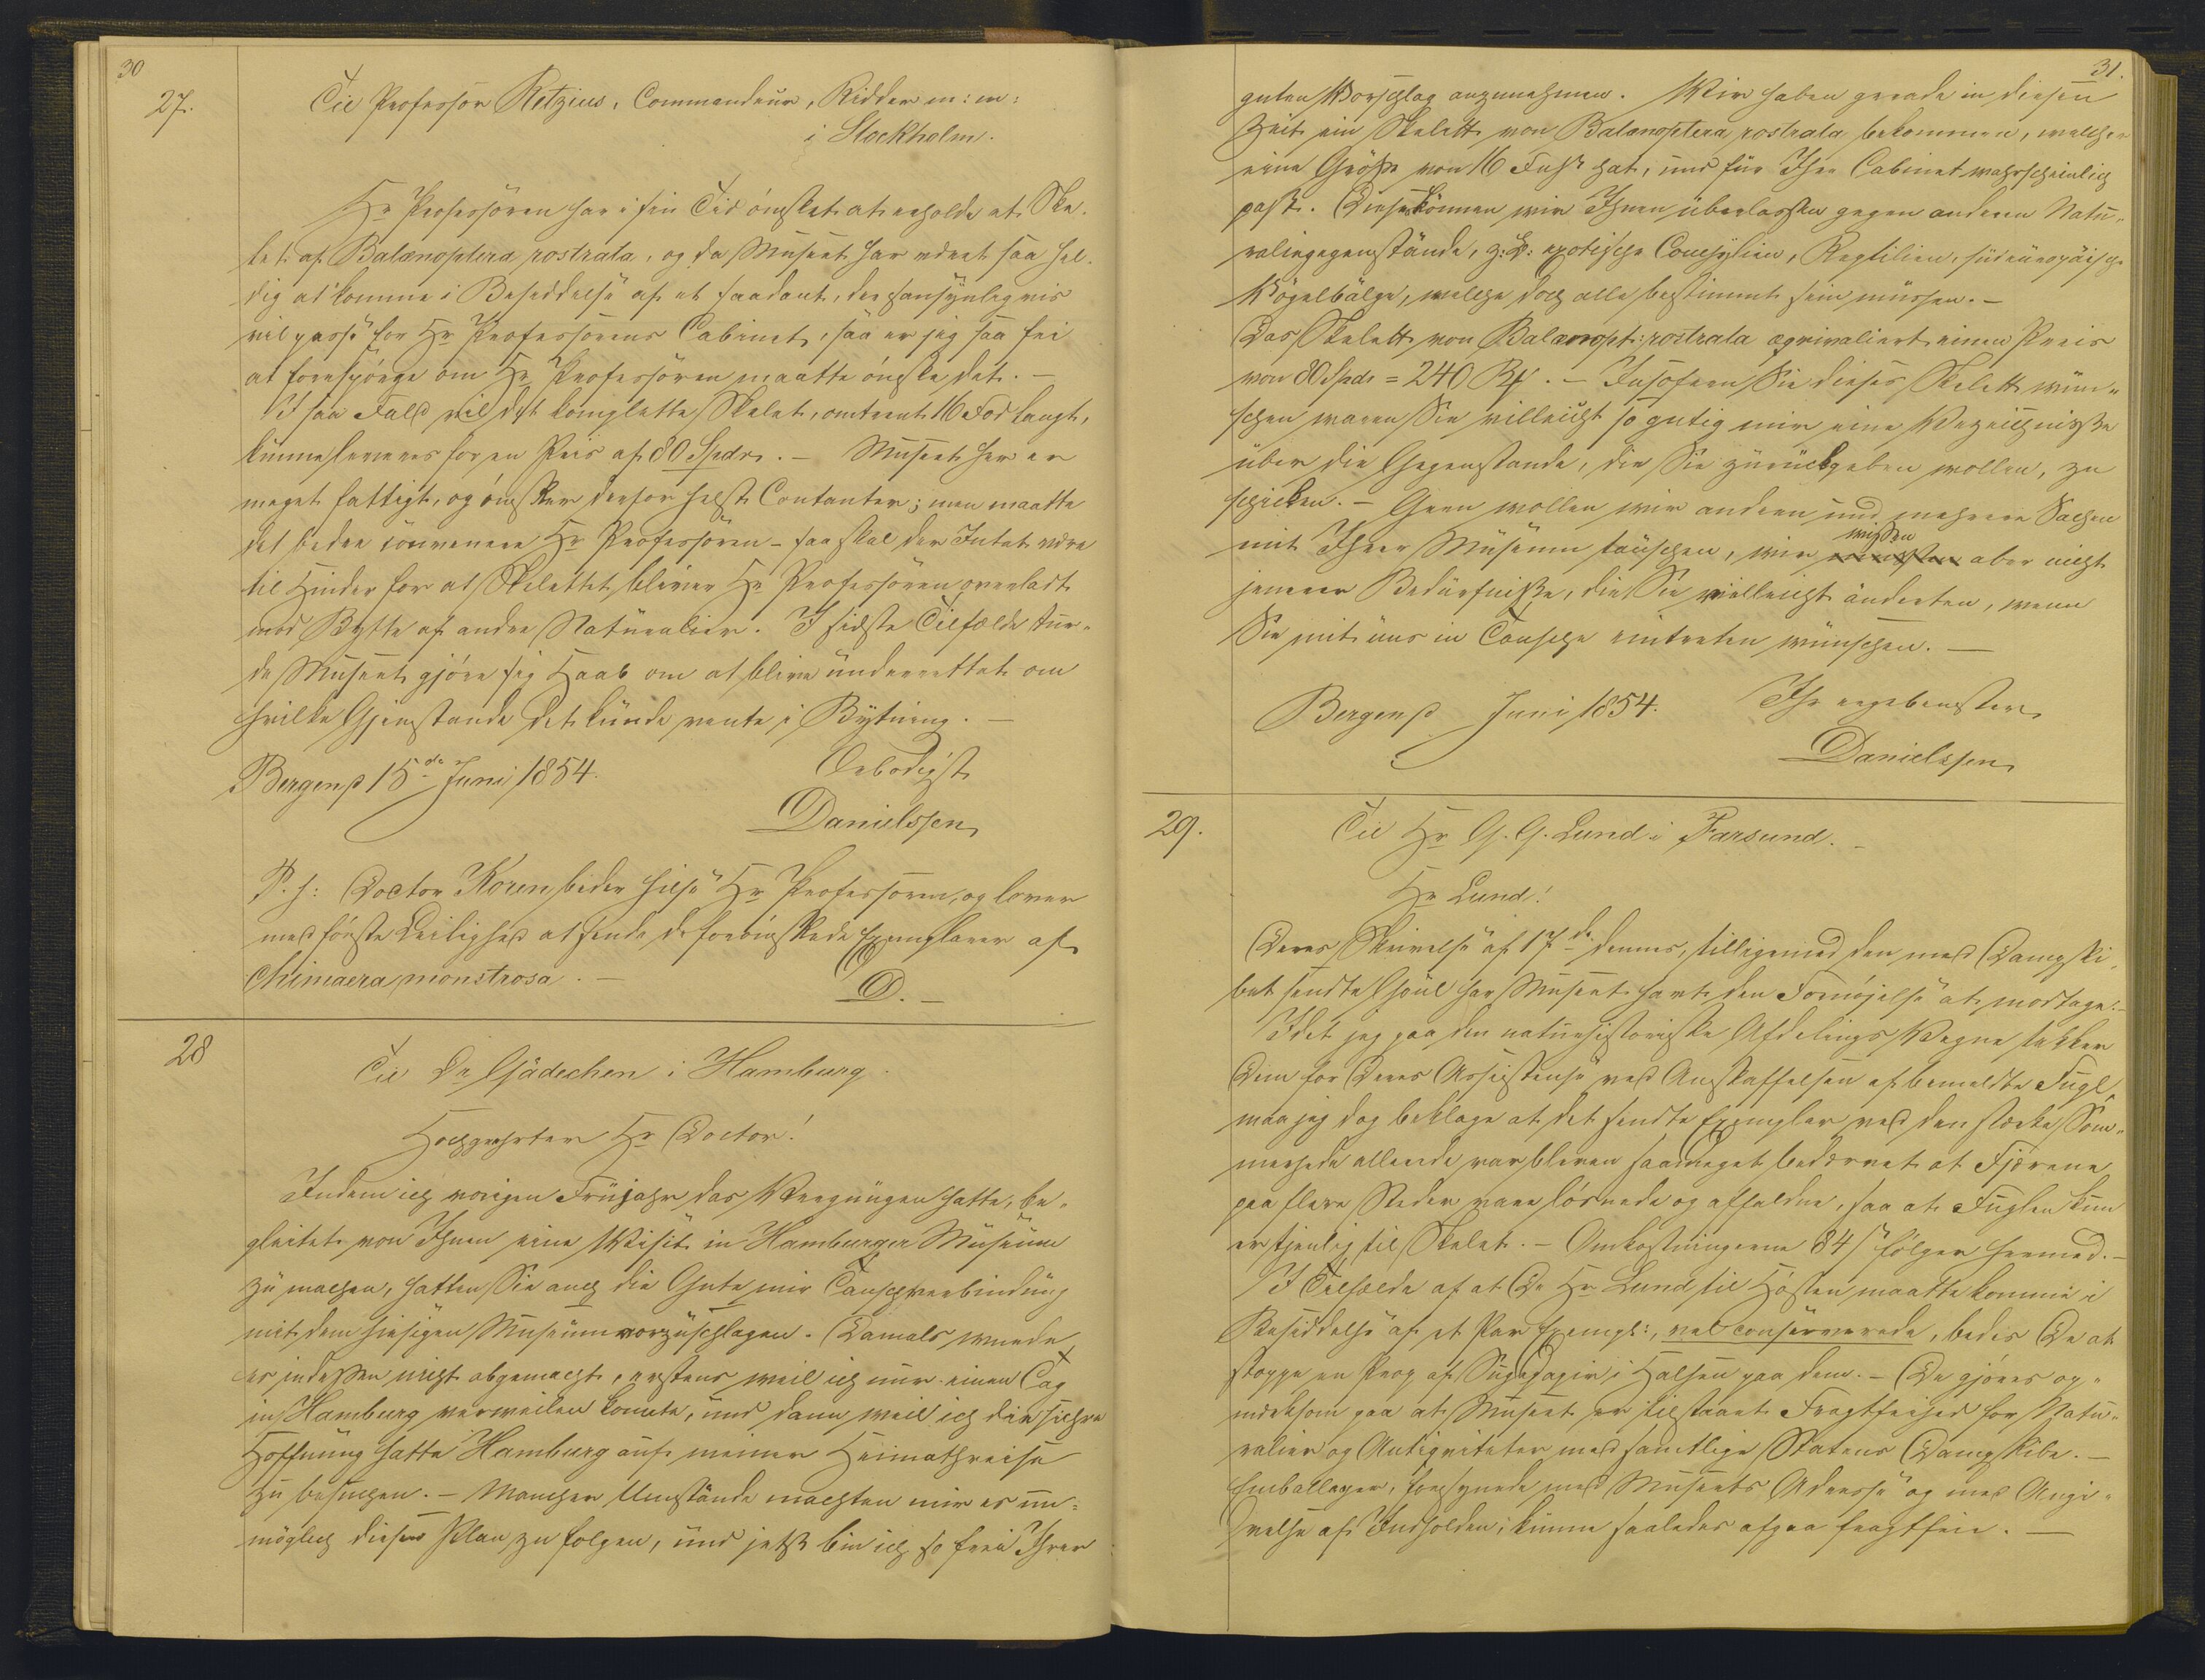 30
27.
Til Professor Retzius, Commandeur, Ridder m: m:
i Stockholm.
Hr Professoren har i sin Tid ønsket at erholde et Ske-
let af Balænoptera rostrata, og da Museet har været saa hel-
dig at komme i Besiddelse af et saadant, der sandsynligvis
vil passe for Hr Professorens Cabinet, saa er jeg saa fri
at forespørge om Hr Professoren maatte ønske det. —
I saa Fald vil det komplette Skelet, omtrent 16 Fod langt,
kunne leveres for en Pris af 80 Spdr. — Museet her er
meget fattigt, og ønsker derfor helst Contanter; men maatte
det bedre convenere Hr Professoren – saa skal der Intet være
til Hinder for at Skelettet bliver Hr Professoren overladt
mod Bytte af andre Naturalier. I sidste Tilfælde tur-
de Museet gjøre sig Haab om at blive underrettet om
hvilke Gjenstande det kunde vente i Bytning. —
Bergen p 15de Juni 1854.
Ærbødigst
Danielssen
P. S: Doctor Koren beder hilse Hr Professoren, og lover
med første Leilighed at sende de forønskede Exemplarer af
Chimaera monstrosa. —
D. —
28
Til Dr Gädechen i Hamburg.
Hochgeehrter Hr Doctor!
Indem ich vorigen Frühjahr das Vergnügen hatte, be-
gleitet von Ihnen eine Visit in Hamburger Museum
zu machen, hatten Sie auch die Gute mir Tauschverbindung
mit dem hiesigen Museum vorzuschlagen. Damals wurde
es indessen nicht abgemacht, erstens weil ich nur einen Tag
in Hamburg verweilen konnte, und dann weil ich die sichre
Hoffnung hatte Hamburg auf meiner Heimathreise
zu besuchen. — Mancher Umstände machten mir es un-
möglich diesen Plan zu folgen, und jetzt bin ich so frei Ihrer
31.
guten Vorschlag anzunehmen. Wir haben gerade in diesen
Zeit ein Skelett von Balænoptera rostrata bekommen, welcher
eine Größe von 16 Fuss hat, und für Ihr Cabinet wahrscheinlich
past. Diese können wir Ihnen überlassen gegen anderen Natu-
raliengegenstände, z: B: exotische Conchylien, Reptilien, südeuropäische
Vögelbälge, welche doch alle bestimmt sein müssen. —
Das Skelett von Balænopt: rostrata æqvivaliert einen Preis
von 80 Spdr = 240 Rf. — Insofern Sie dieses Skelett wün-
schen waren Sie villeicht so gutig mir eine Verzeichnisse
über die Gegenstande, die Sie zurückgeben wollen, zu
schicken. — Gern wollen wir andern und mehrere Sachen
mit Ihrer Museum tauschen, wir wissen aber nicht
jenerer Bedürfnisse, die Sie vielleicht änderten, wenn
Sie mit uns in Tausche eintreten wünschen. —
Bergen p Juni 1854.
Ihr ergebenster
Danielssen
29.
Til Hr G. G. Lund i Farsund. —
Hr Lund!
Deres Skrivelse af 17de dennes, tilligemed den med Dampski-
bet sendte Fugl har Museet havt den Fornøjelse at modtage. —
Idet jeg paa den naturhistoriske Afdelings Vegne takker
Dem for Deres Assistense ved Anskaffelsen af bemeldte Fugl,
maa jeg dog beklage at det sendte Exemplar ved den stærke Som-
merhede allerede var bleven saameget bedærvet at Fjærene
paa flere Steder vare løsnede og affaldne, saa at Fuglen kun
er tjenlig til Skelet. — Omkostningerne 84 ß følger hermed. —
I Tilfælde af at De Hr Lund til Høsten maatte komme i
Besiddelse af et Par Exempl:, vel conserverede, bedes De at
stoppe en Prop af Sugepapir i Halsen paa dem. — De gjøres op-
mærksom paa at Museet er tilstaaet Fragtfrihed for Natu-
ralier og Antiqviteter med samtlige Statens Dampskibe. —
Emballager, forsynede med Museets Adresse og med Angi-
velse af Indholdet, kunne saaledes afgaa fragtfrie. —